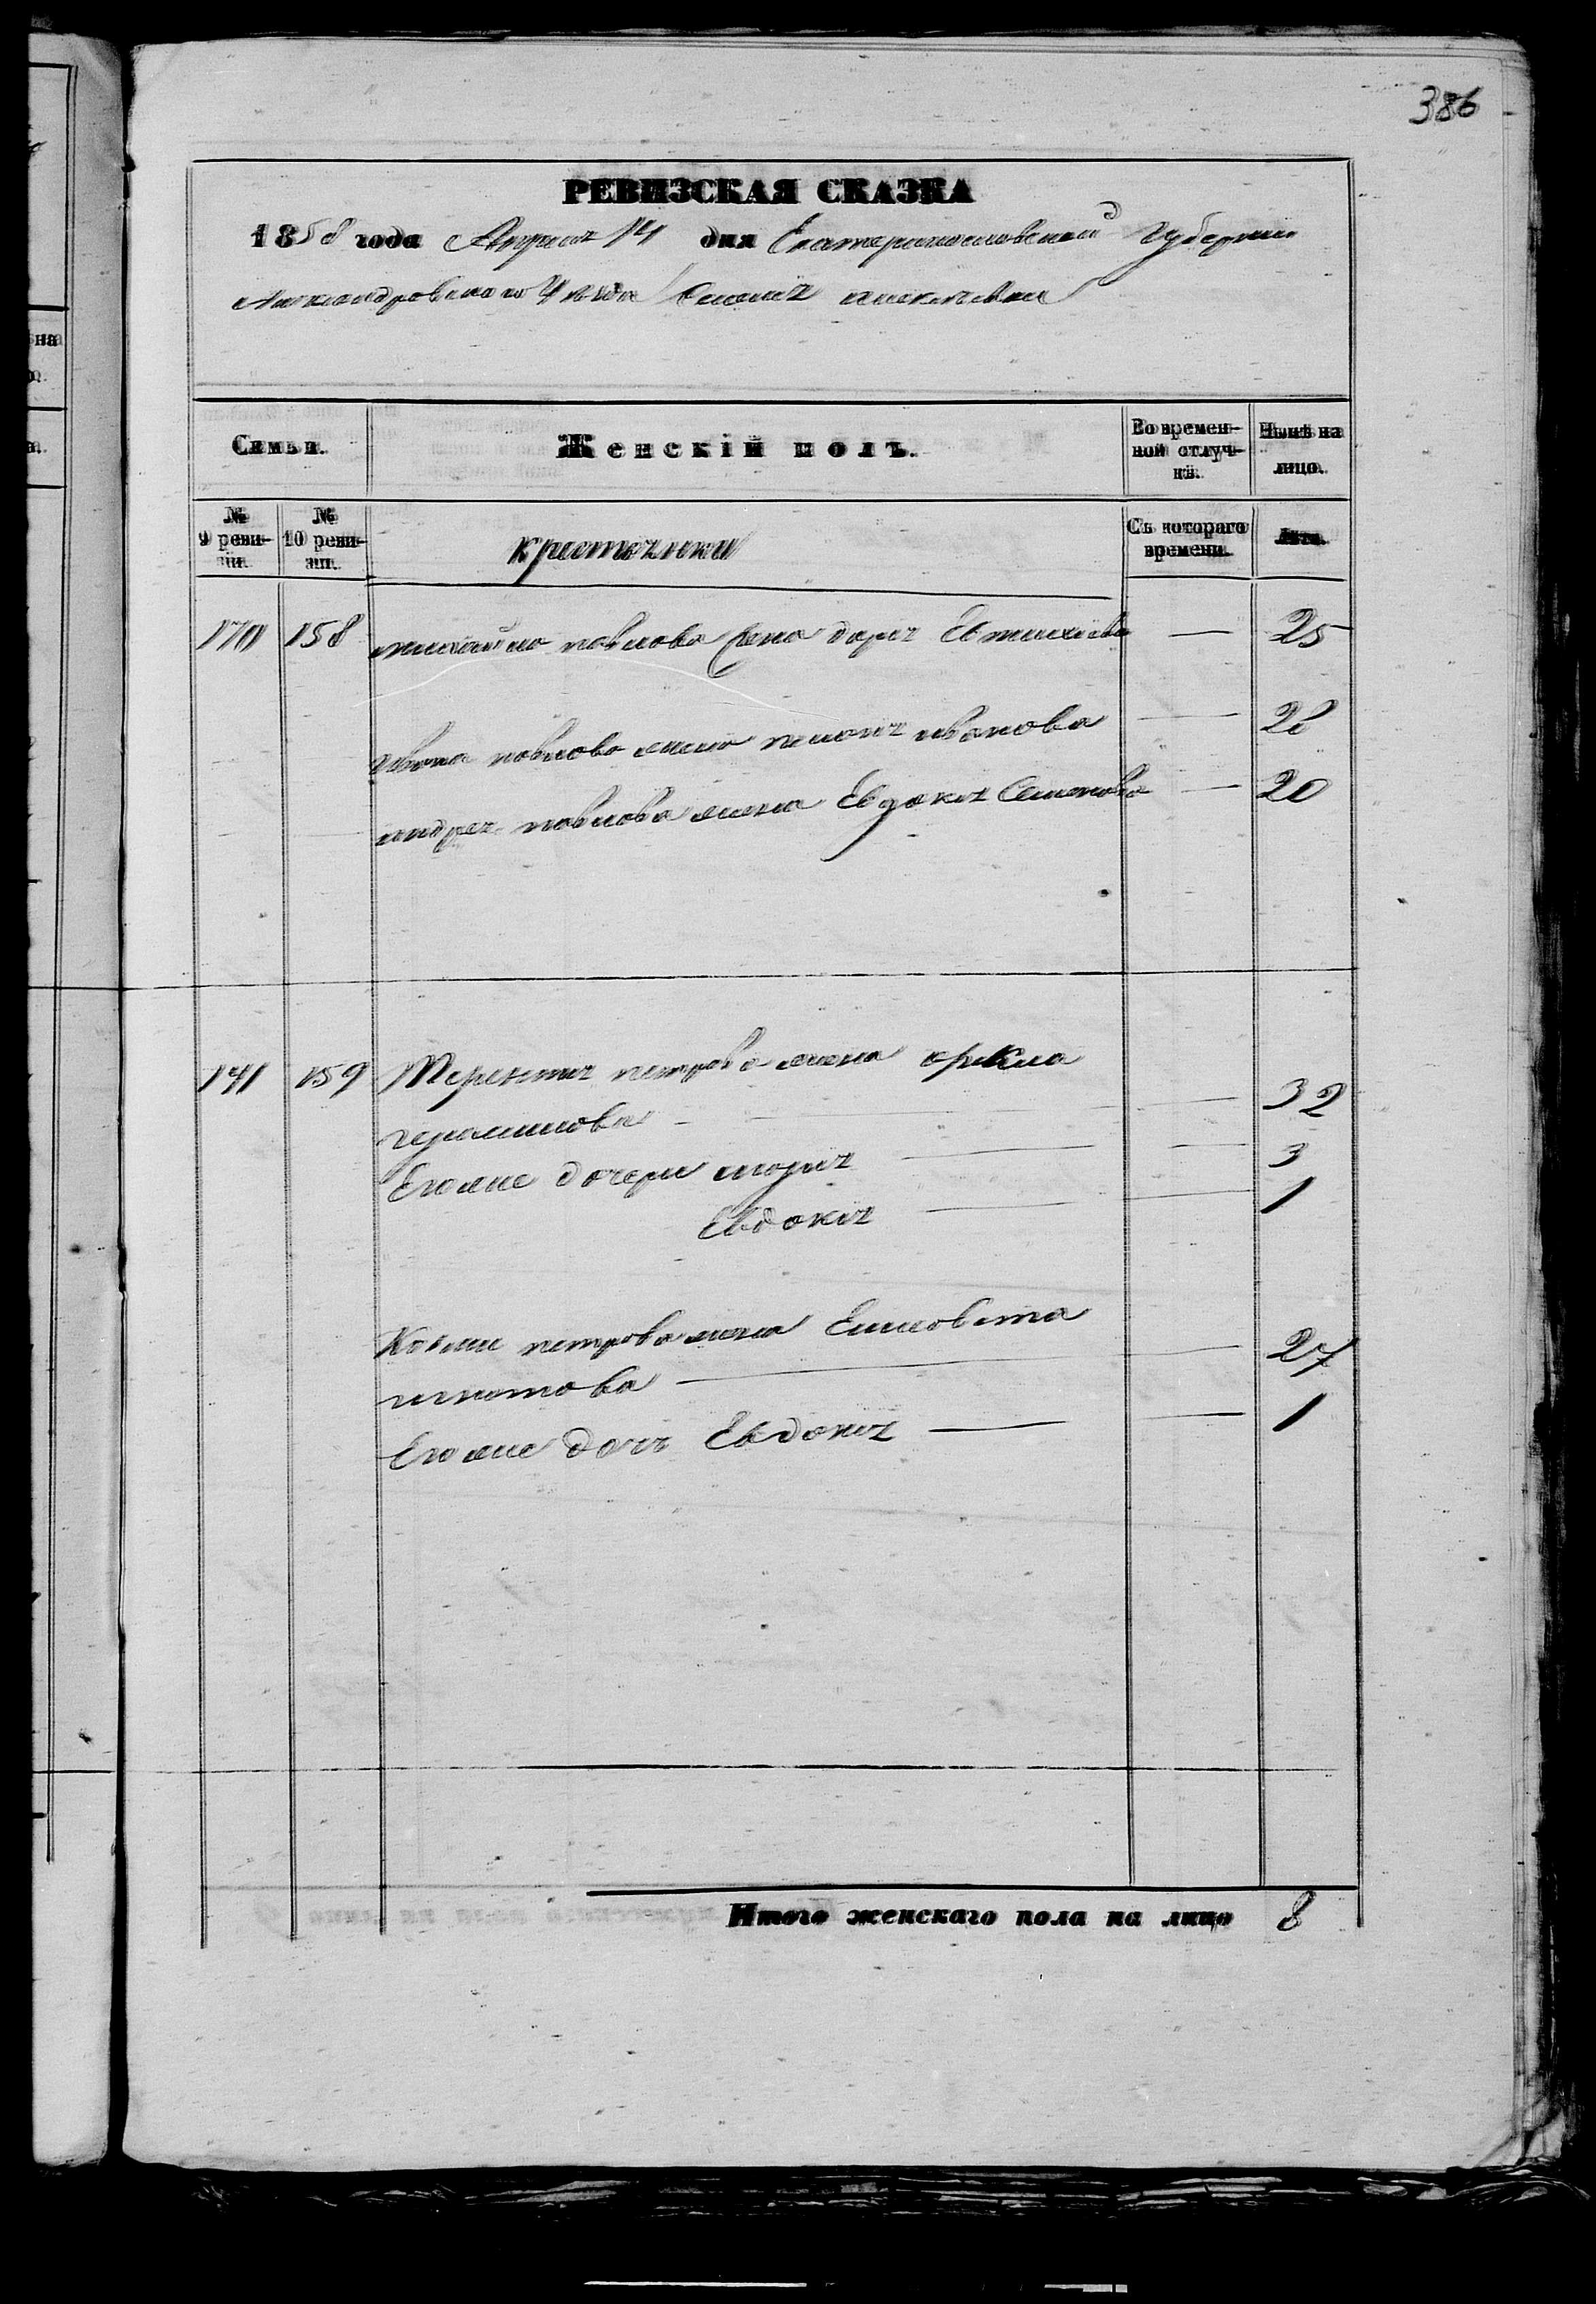 386
РЕВИЗСКАЯ СКАЗКА
1858 года Апреля 14 дня Екатеринославской Губернии
Александровского Уезда
Семьи.
Женскій полъ.
Во времен-
ной отлуч-
кѣ.
Нынѣ на
лицо.
№
9 реви-
зіи.
№
10 реви-
зіи.
крестьянки
Съ котораго
времени.
Лѣта.
158 михайло павлова Дарья — 25
Ивана павлова жена иванова — 28
андрея павлова жена Евдокия Семенова — 20
159 Терентия петрова жена
герасимова — 32
Его же дочери мария — 3
Евдокия — 1
петрова жена Елисовета
игнатова — 27
Его же дочь Евдокия — 1
Итого женскаго пола на лицо 8